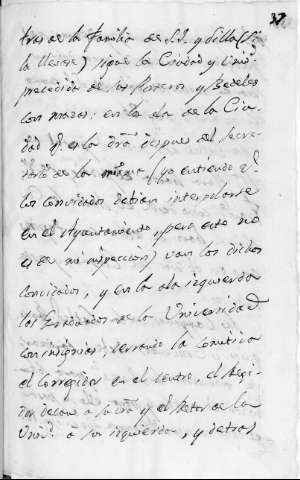 37
tres de la familia de S. I. y silla (si
la lleváre) sigue la Ciudad y Univ.d
precedida de los Porteros y Bedeles
con mazas: en la ala de la Ciu-
dad q.e es la dra despues del Secre-
tario de la misma (yo entiendo q.e
los Convidados debian interpolarse
en el Ayuntamiento, pero esto no
es de mi inspeccion) van los dichos
convidados, y en la ala izquierda
los Graduados de la Universidad
con insignias, cerrando la Comitiva
el Corregidor en el centro, el Regi-
dor decano a su dra y el Retor de la
Univ.d a su izquierda, y detras